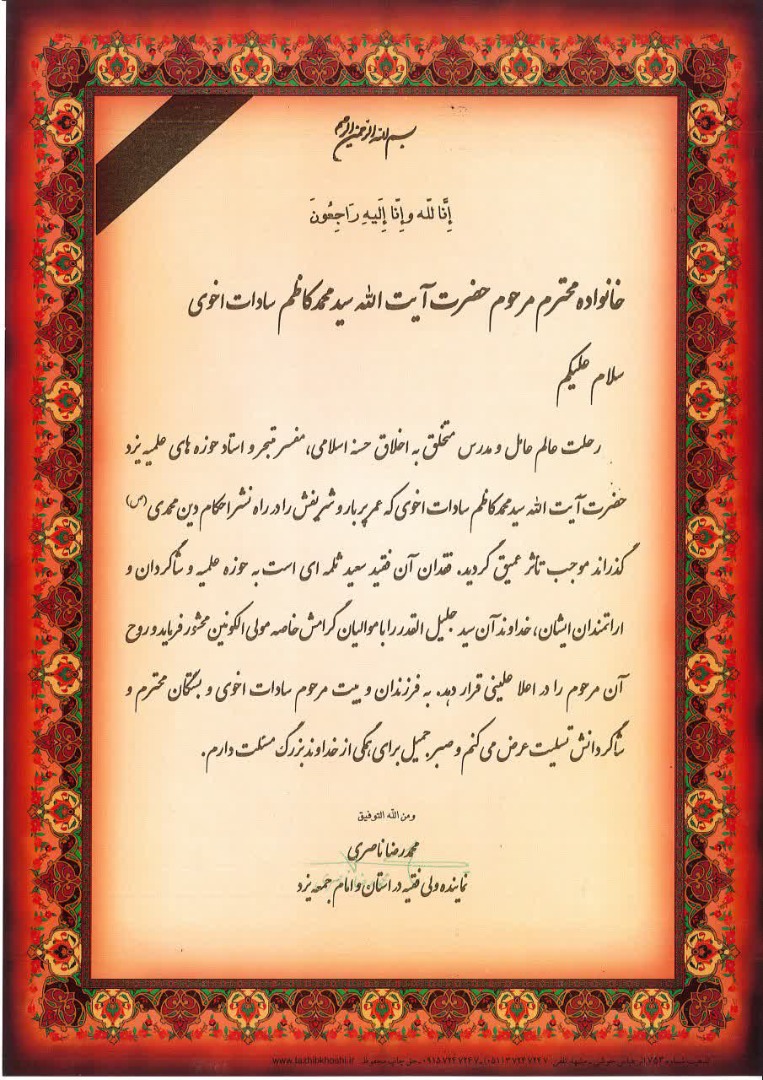 بسم الله الرحمن الرحیم
إِنَّا لِلّه وإِنَّا إِلَیهِ رَاجِعُونَ
خانواده محترم مرحوم حضرت آیت الله سید محمد کاظم سادات اخوی
سلام علیکم
رحلت عالم عامل و مدرس متخلق به اخلاق حسنه اسلامی، مفسر متبحر و استاد حوزه های علمیه یزد
حضرت آیت الله سید محمد کاظم سادات اخوی که عمر پربار و شریفش را در راه نشر احکام دین محمدی (ص)
گذراند موجب تاثر عمیق گردید. فقدان آن فقید سعید ثلمه ای است به حوزه علمیه و شاگردان و
اراتمندان ایشان، خداوند آن سید جلیل القدر را با موالیان گرامش خاصه مولی الکونین محشور فرماید و روح
آن مرحوم را در اعلا علیینی قرار دهد. به فرزندان و بیت مرحوم سادات اخوی و بستگان محترم و
شاگردانش تسلیت عرض می کنم و صبر جمیل برای همگی از خداوند بزرگ مسئلت دارم.
ومن الله التوفیق
محمدرضا ناصری
نماینده ولی فقیه در استان و امام جمعه یزد
www.tazhibkhoshi.ir